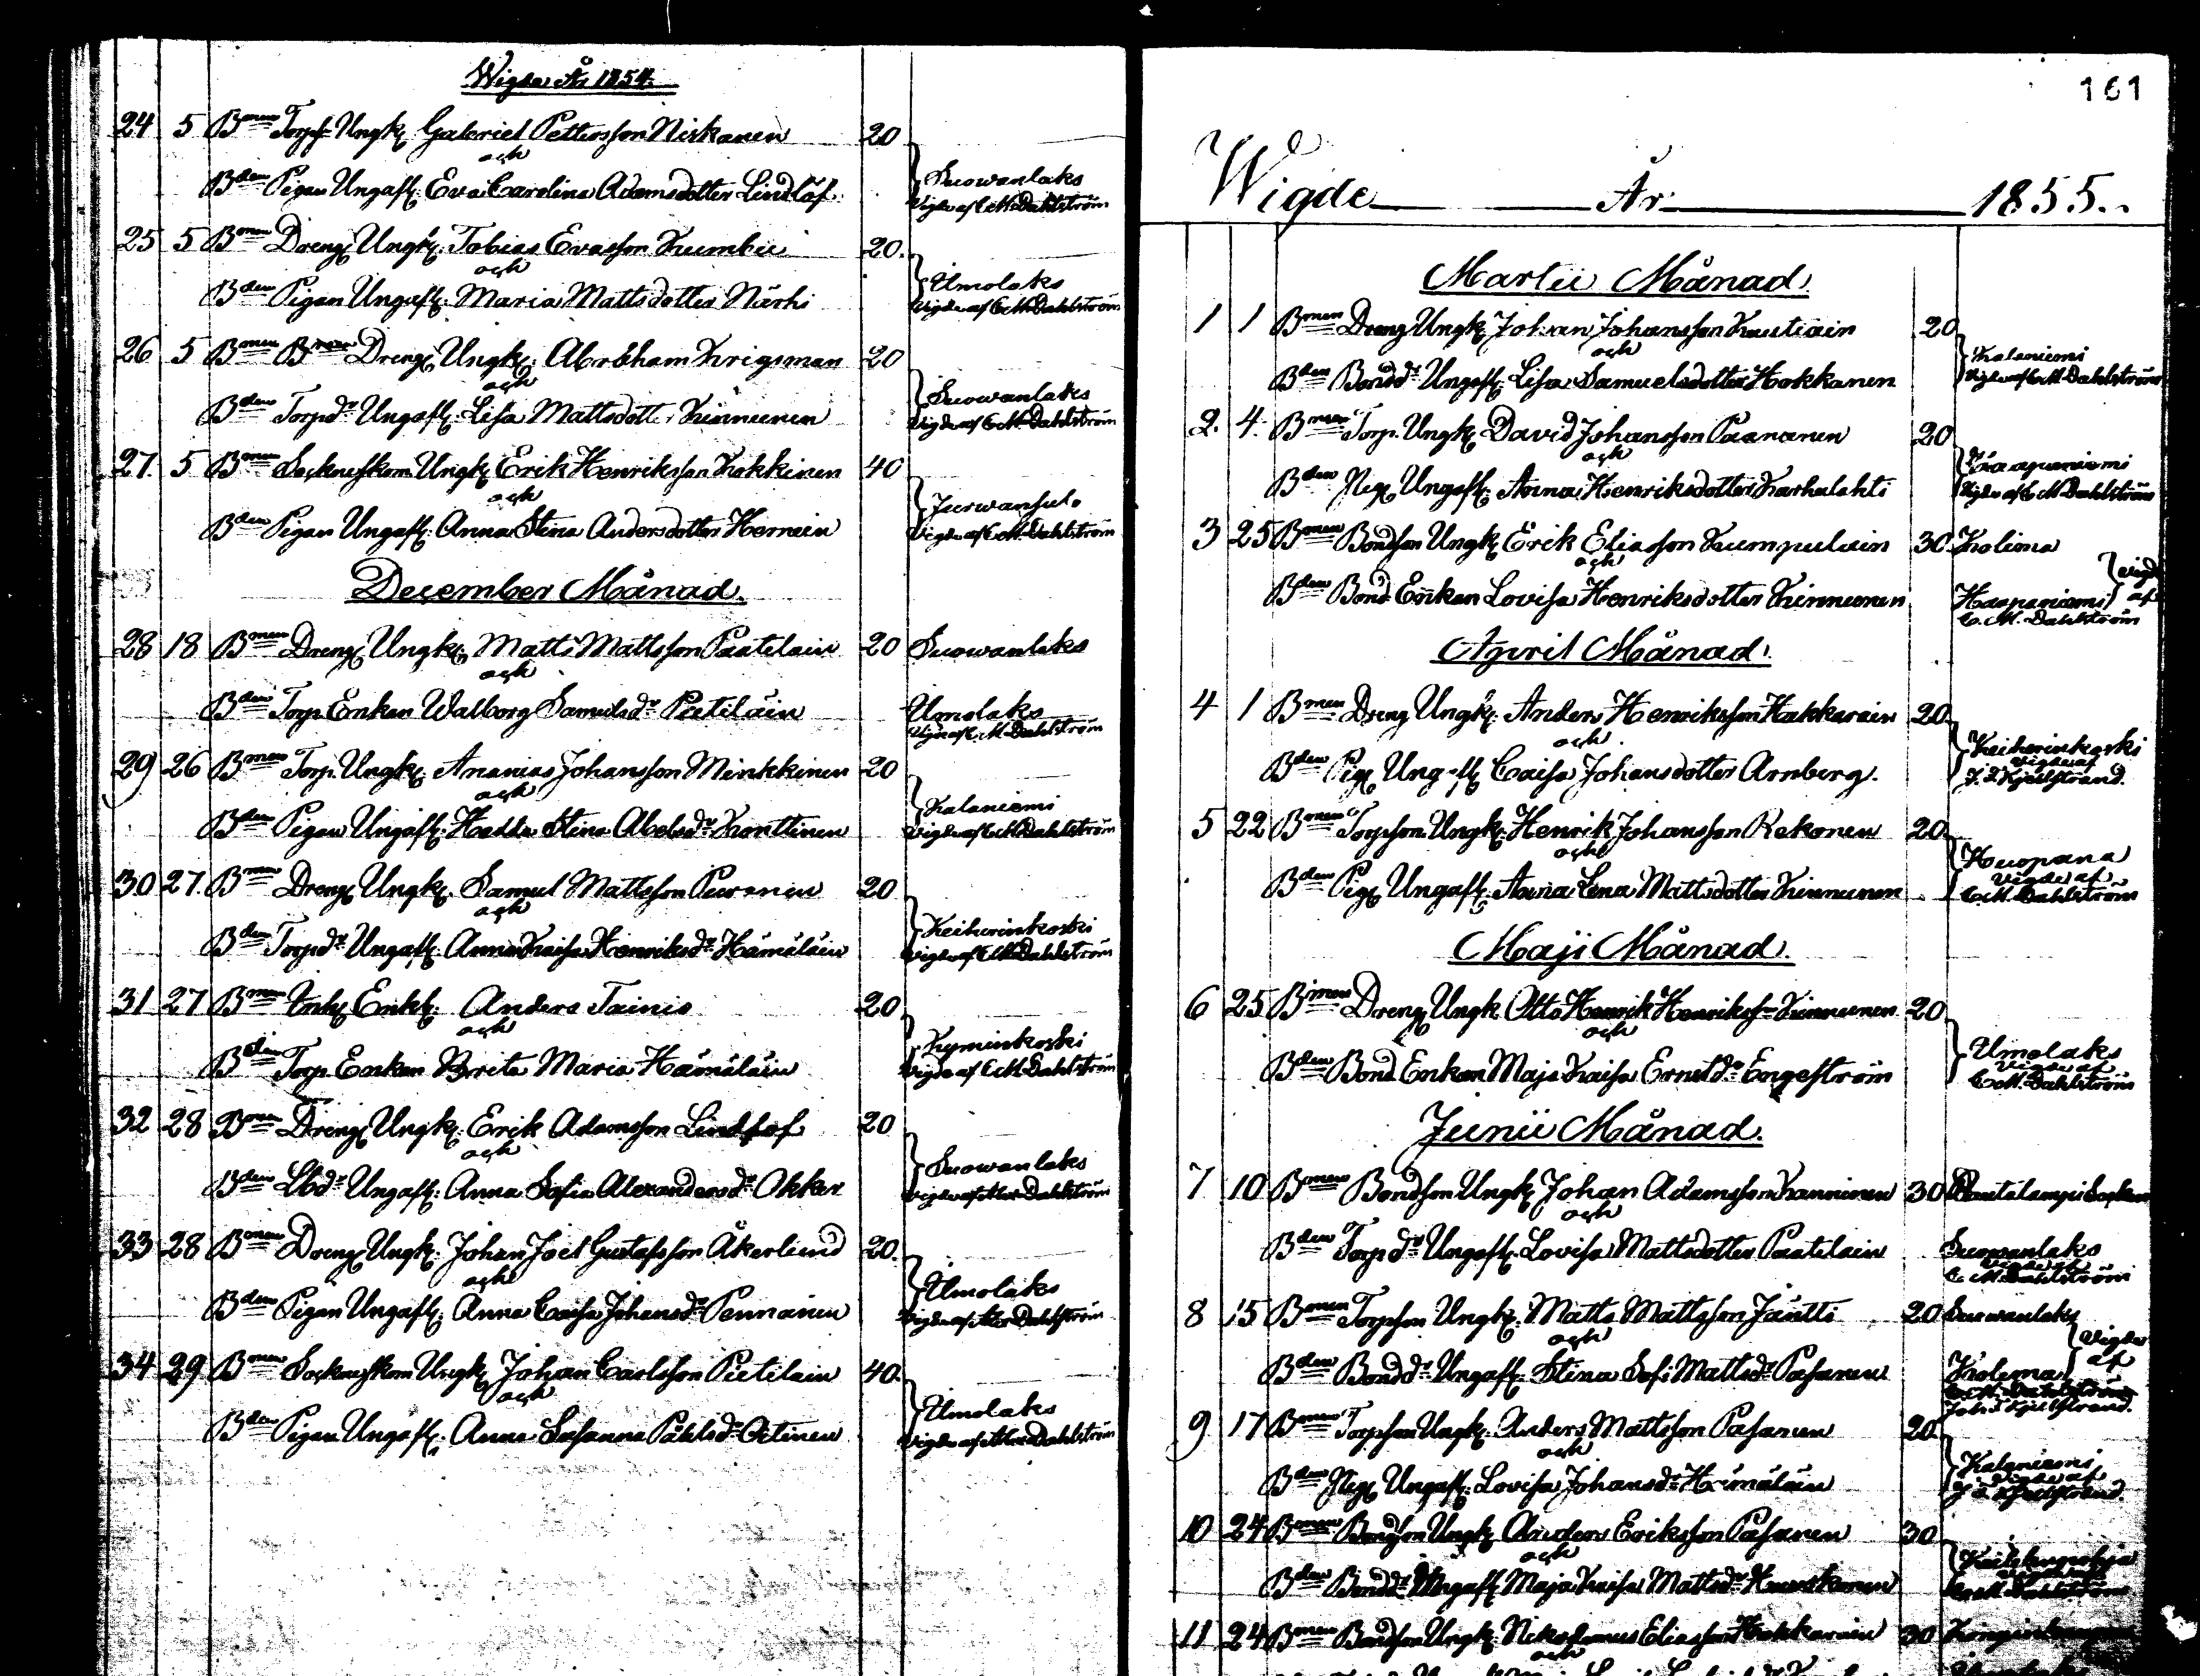 Wigde År 1854.
24 5 Bmen Torp. Ungk. Gabriel Pettersson Niskanen 20
och
Bden Pigan Ungafl. Eva Carolina Adamsdotter Lindlöf Suowanlaks
Vigde af C M Dahlström
25 5 Bmen Dreng. Ungk. Tobias Evasson Kumbu 20.
och
Bden Pigan Ungafl. Maria Mattsdotter Närhi Umolaks
Vigde af C M Dahlström
26 5 Bmen Bmen Dreng. Ungk. Abraham Krigsman 20
och
Bden Torpdr Ungafl. Lisa Mattsdotter Kinnunen Suowanlaks
Vigde af C M Dahlström
27. 5 Bmen Ungk. Erik Henriksson Kokkinen 40
och
Bden Pigan Ungafl. Anna Stina Andersdotter
Vigde af C M Dahlström
December Månad.
28 18 Bmen Dreng. Ungk. Matts Mattsson Paatelain 20 Suowanlaks
och
Bden Torp. Enkan Walborg Samuelsdr Pietiläin Umolaks
Vigde af C. M. Dahlström
29 26 Bmen Torp. Ungk. Ananias Johansson Minkkinen 20
och
Bden Pigan Ungafl. Hedda Stina Abelsdr Konttinen Kalaniemi
Vigde af C M Dahlström
30 27. Bmen Dreng. Ungk. Samuel Mattsson Puranen 20
och
Bden Torpdr Ungafl. Anna Kaisa Henriksdr Hämäläin Keiherinkoski
Vigde af C M Dahlström
31 27 Bmen Enkl. Anders Tainio 20
och
Bden Torp. Enkan Brita Maria Hämäläin Kyminkoski
Vigde af C M Dahlström
32 28 Bmen Dreng. Ungk. Erik Adamsson Lindlöf 20
och
Bden Ungafl. Anna Sofia Alexandersdr Okker Suowanlaks
Vigde af Dahlström
33 28 Bmen Dreng. Ungk. Johan Joel Gustafsson Åkerlund 20.
och
Bden Pigan Ungafl. Anna Caisa Johansdr Pennanen Umolaks
Vigde af Dahlström
34 29 Bmen Ungk. Johan Carlsson Pietilain 40.
och
Bden Pigan Ungafl. Anna Susanna Påhlsdr Oitinen Umolaks
Vigde af Dahlström
161
Wigde År 1855.
Martii Månad.
1 1 Bmen Dreng Ungk. Johan Johansson Kautiain 20
och
Bden Bonddr Ungafl. Lisa Samuelsdotter Hakkanen Kalaniemi
Vigde af C M Dahlström
2. 4. Bmen Torp. Ungk. David Johansson Paananen 20
och
Bden Ungafl. Anna Henriksdotter Karhulahti Haapaniemi
Vigde af C M Dahlström
3 25 Bmen Bondson Ungk. Erik Eliasson Kumpulain 30 Kolima
och
Bden Bond Enkan Lovisa Henriksdotter Kinnunen Haapaniemi vigde af
C. M. Dahlström
April Månad.
4 1 Bmen Dreng Ungk. Anders Henriksson Hakkarain 20
och
Bden Pig. Ungafl. Caisa Johansdotter Arnberg. Keiherinkoski
Vigde af
J. I. Kjellstrand.
5 22 Bmen Torpson Ungk. Henrik Johansson Rekonen 20
och
Bden Pig. Ungafl. Anna Lena Mattsdotter Kinnunen Huopana
Vigde af
C. M. Dahlström
Maji Månad.
6 25 Bmen Dreng Ungk. Otto Henrik Henrikss. Kinnunen 20
och
Bden Bond Enkan Maja Kaisa Ernstdr Engeström Umolaks
Vigde af
C. M. Dahlström
Junii Månad.
7 10 Bmen Bondson Ungk. Johan Adamsson Kanninen 30 Rautalampi Socken
och
Bden Torpdr Ungafl. Lovisa Mattsdotter Paatelain Suowanlaks
Vigde af
C. M. Dahlström
8 15 Bmen Torpson Ungk. Matts Mattsson Jäntti 20 Suowanlaks
och
Bden Bonddr Ungafl. Stina Sofi Mattsdr Pasanen Kolima Vigde af
Kjellstrand.
9 17 Bmen Torpson Ungk. Anders Mattsson Pasanen 20
och
Bden Ungafl. Lovisa Johansdr Hämäläin Kalaniemi
Vigde af
Kjellstrand.
10 24 Bmen Bondson Ungk. Anders Eriksson Pasanen 30
och
Bden Bonddr Ungafl. Maja Kaisa Mattsdr
11 24 Bmen Bondson Ungk. Nikodemus Eliasson Hakkarain 30
och